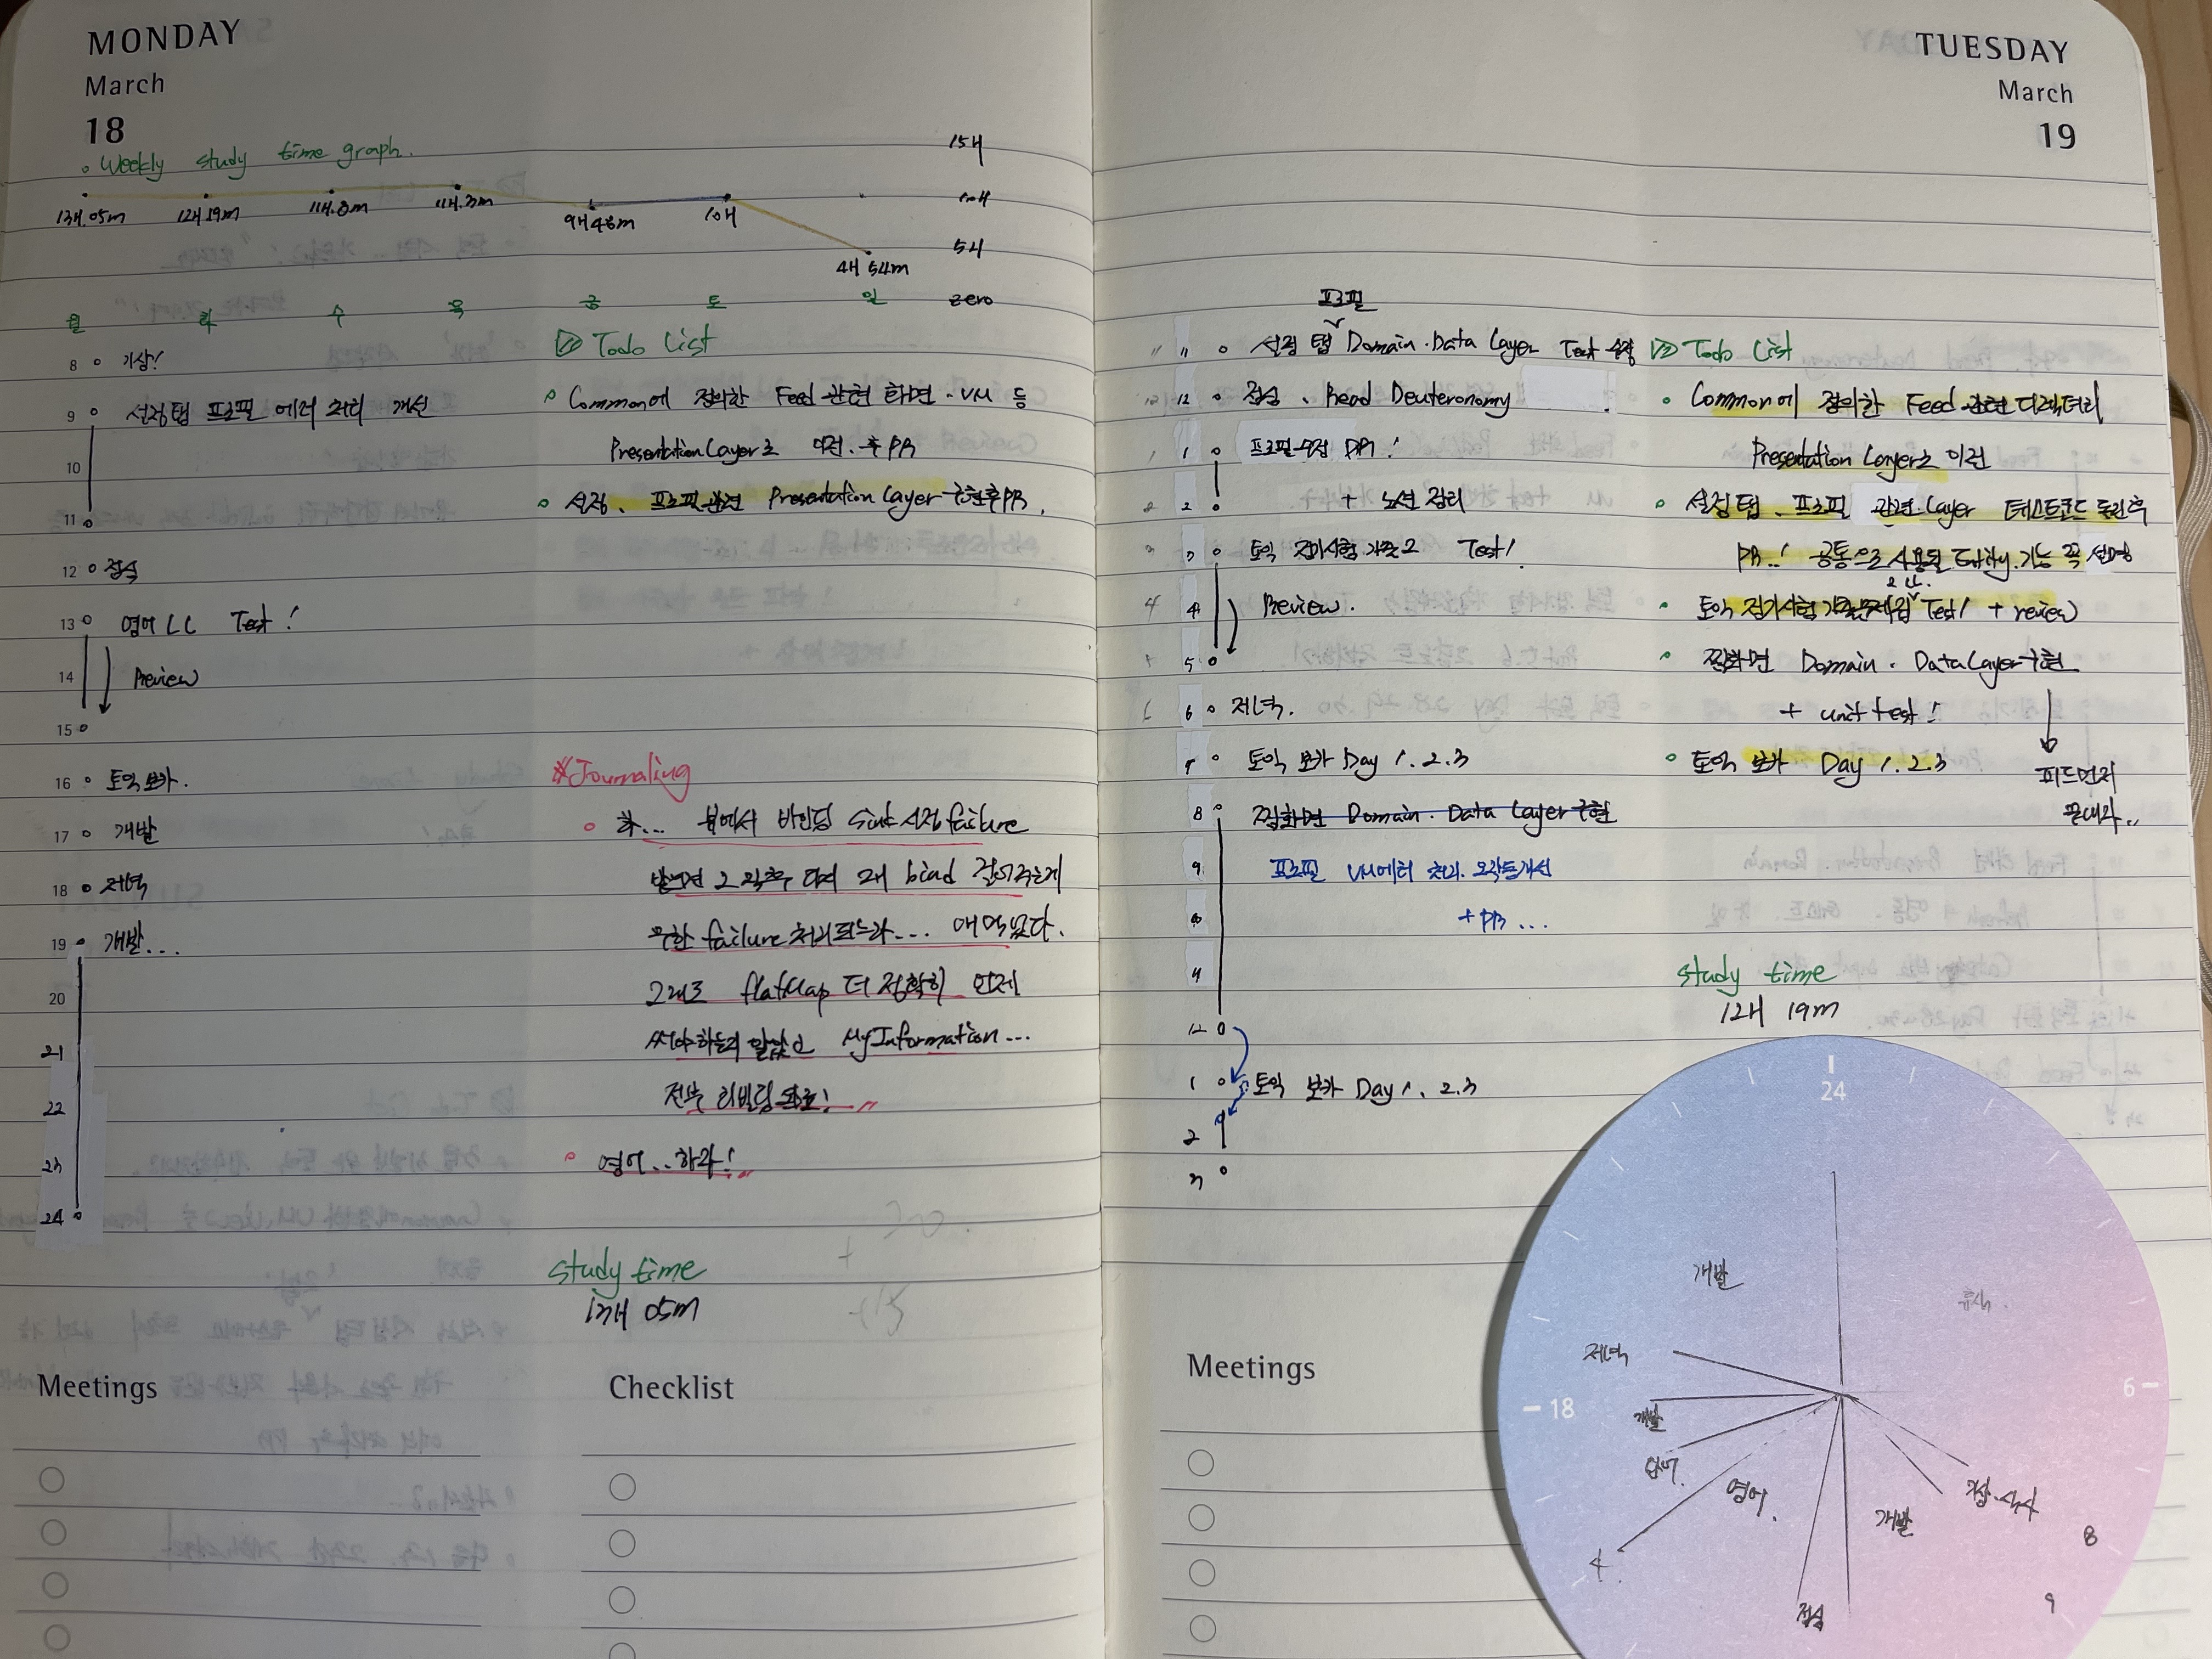 MONDAY
March
18
Weekly study time graph.
15H
10H
5H
zero
13H.05m
12H 19m
9H 48m
10H
4H 54m
월 화 수 목 금 토 일
8 기상!
9 설정탭 프로필 에러 처리 개선
10
11
12 점심
13 영어 LC Test!
14 Review
15
16 토익 보카.
17 개발
18 저녁
19 개발...
20
21
22
23
24
Todo List
Common에 정의한 Feed 관련 화면·VM 등
Presentation Layer로 이전. 후 PR
설정. 프로필 관련 Presentation Layer 구현 후 PR.
※Journaling
하... 뷰에서 바인딩 Sink 시점 failure
bind
무한 failure 처리되느라... 애먹었다.
그래도 flatMap 더 정확히 언제
써야하는지 알았고 MyInformation...
전부 리빌딩 완료!
영어...하라!
study time
13H 05m
Meetings
Checklist
TUESDAY
March
19
프로필
11 설정 탭 Domain·Data Layer Test 수정
12 점심. Read Deuteronomy
1 프로필 수정 PR!
2 + 노션 정리
3 토익 정기시험 기출 2 Test!
4 Review.
5
6 저녁.
7 토익 보카 Day 1. 2. 3
8 찜화면 Domain. Data Layer 구현
9 프로필 VM에러 처리. 오작동개선
+PR ...
11
12
1 토익 보카 Day 1. 2. 3
2
3
Todo List
Common에 정의한 Feed 관련 디렉터리
Presentation Layer로 이전
설정 탭. 프로필 관련 Layer 테스트코드 돌린후
PR..! 공통으로 사용될 Entity.기능 꼭 설명
토익 정기시험 기출문제집 2 Test! + review
찜화면 Domain. Data Layer 구현
+ unit test!
토익 보카 Day 1. 2. 3
피드먼저
끝내라..
study time
12H 19m
24
개발
휴식.
저녁
18
6
개발
영어.
기상.식사
개발
점심
8
9
Meetings